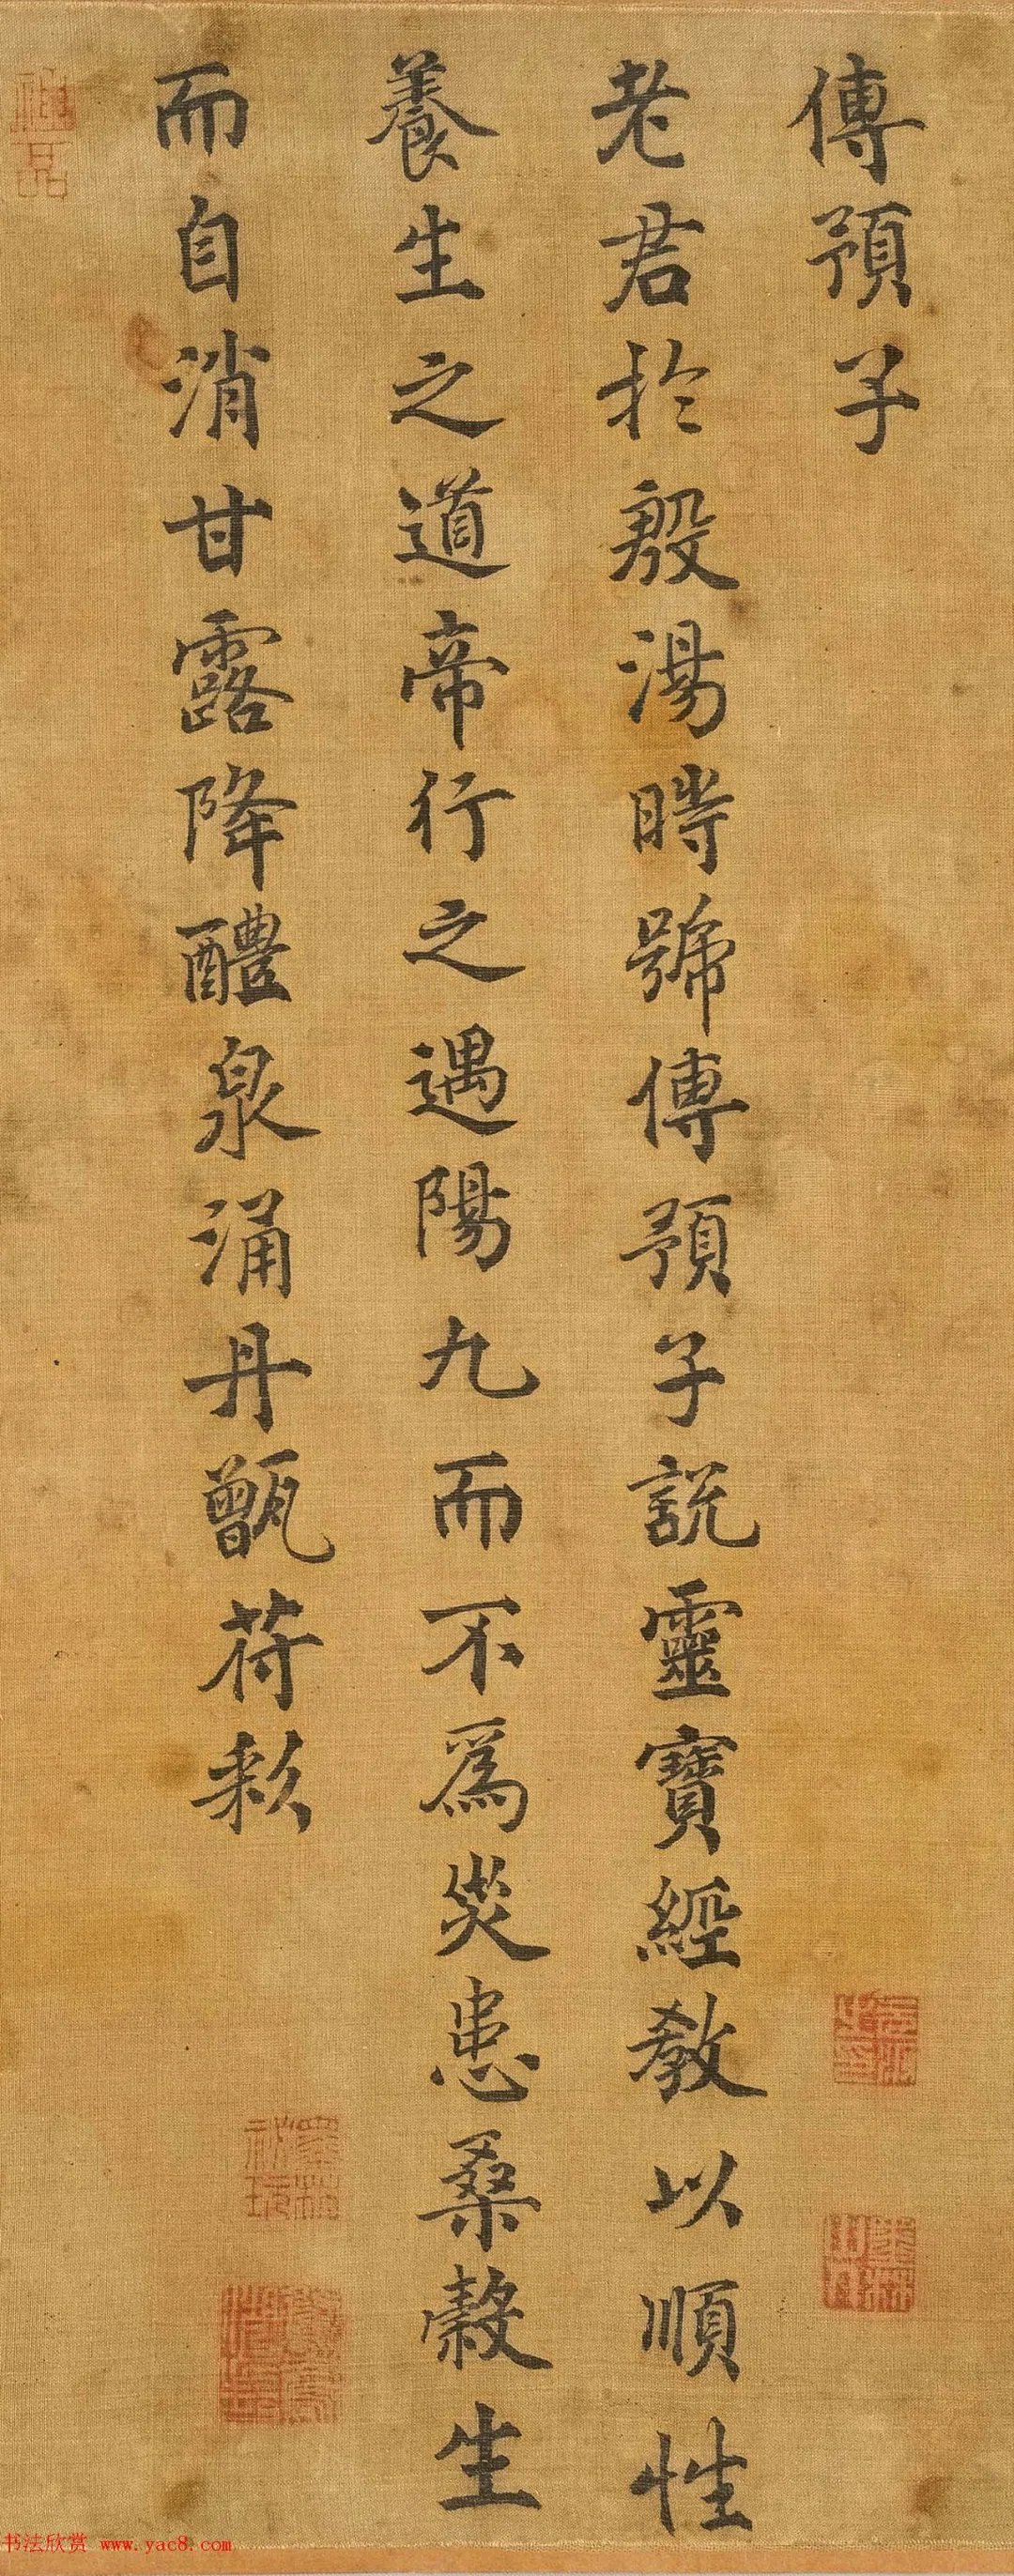 傳預子
老君於殷湯時號傳預子說靈寶經教以順性
養生之道帝行之遇陽九而不為災患桑穀生
而自消甘露降醴泉涌丹甑荷敕
书法欣赏 www.yac8.com